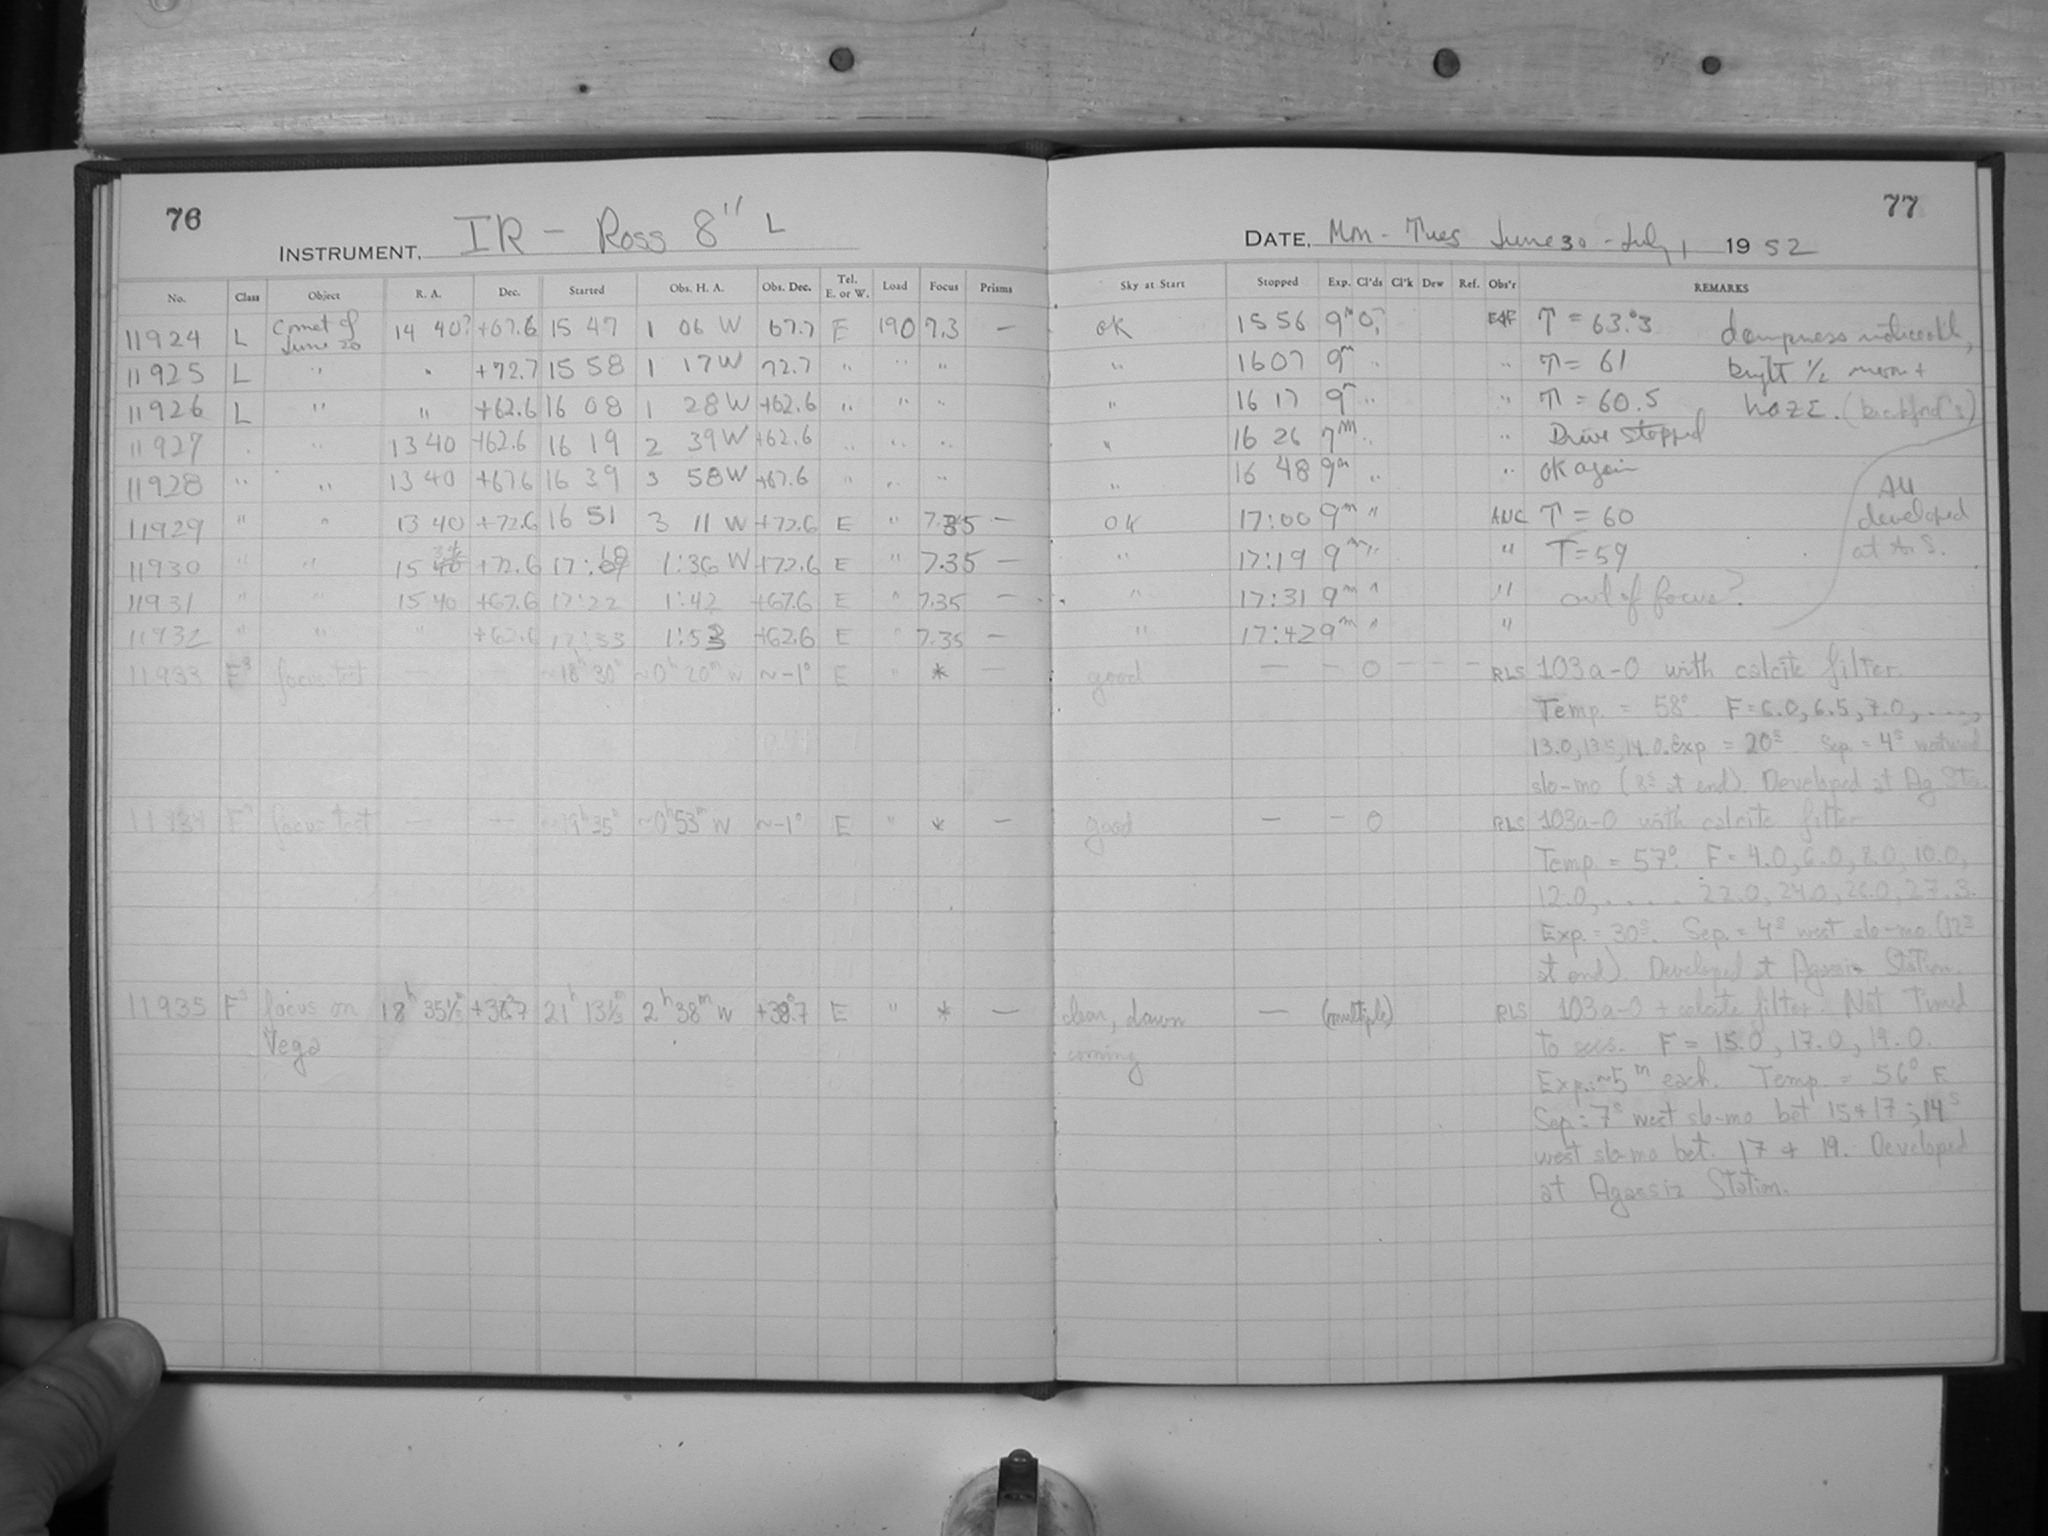 76
INSTRUMENT, IR - Ross 8" L
No. Class Object R. A. Dec. Started Obs. H. A. Obs. Dec. Tel. E. or W. Load Focus Prisms
11924 L Comet of June 20 14 40? +67.6 15 47 1 06 W 67.7 E 190 7.3 —
11925 L " " +72.7 15 58 1 17W 72.7 " " "
11926 L " " +62.6 16 08 1 28W +62.6 " " "
11927 " 13 40 +62.6 16 19 2 39W +62.6 " " "
11928 " " 13 40 +67.6 16 39 3 58W +67.6 " " "
11929 " " 13 40 +72.6 16 51 3 11 W +72.6 E " 7.35 —
11930 " " 15 +72.6 17: 1:36 W +72.6 E " 7.35 —
11931 " " 15 40 +67.6 17:22 1:42 +67.6 E " 7.35 —
11932 " " " +62.6 17:33 1:53 +62.6 E " 7.35 —
11933 F³ focus test — — ~18ʰ30ᵐ ~0ʰ 20ᵐ W ~-1° E " * —
11934 F focus test — — ~19ʰ35ᵐ ~0ʰ53ᵐ W ~-1° E " * —
11935 F³ focus on 18ʰ 35⅓ᵐ +38.7 21ʰ 13⅓ᵐ 2ʰ38ᵐ W +38.7 E " * —
Vega
77
DATE, Mon - Tues June 30 - July 1 1952
Sky at Start Stopped Exp. Cl'ds Cl'k Dew Ref. Obs'r REMARKS
OK 15 56 9ᵐ 0 T = 63.°3 dampness noticeable,
" 16 07 9ᵐ " " T = 61 bright ½ moon +
" 16 17 9ᵐ " " T = 60.5 haze.
" 16 26 7ᵐ " " Drive stopped
" 16 48 9ᵐ " " OK again
All
OK 17:00 9ᵐ " T = 60 developed
" 17:19 9ᵐ " " T=59 at A.S.
" 17:31 9ᵐ " " out of focus?
" 17:42 9ᵐ " "
good — — 0 — — — RLS 103a-O with calcite filter.
Temp. = 58°. F=6.0, 6.5, 7.0, ....,
13.0, 13.5, 14.0. Exp = 20ˢ. Sep. = 4ˢ
slo-mo (8ˢ at end). Developed at Ag. Sta.
good — — 0 RLS 103a-O with calcite filter
Temp. = 57°. F = 4.0, 6.0, 8.0, 10.0,
12.0, ..... 22.0, 24.0, 26.0, 27.3.
Exp. = 30ˢ. Sep. = 4ˢ west slo-mo (12ˢ
at end). Developed at Agassiz Station.
clear, dawn — (multiple) RLS 103a-O + calcite filter. Not Timed
coming to secs. F = 15.0, 17.0, 19.0.
Exp.: ~5ᵐ each. Temp. = 56° F.
Sep.: 7ˢ west slo-mo bet 15+17; 14ˢ
west slo-mo bet. 17 + 19. Developed
at Agassiz Station.